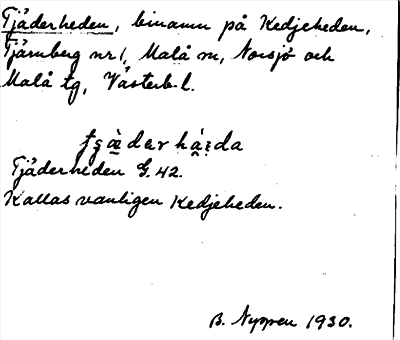 Tjäderheden, binamn på Kedjeheden,
Tjärnberg nr 1, Malå sn, Norsjö och
Malå tg, Västerb. l.
Tjäderheden G. 42.
Kallas vanligen Kedjeheden.
B. Nyman 1930.